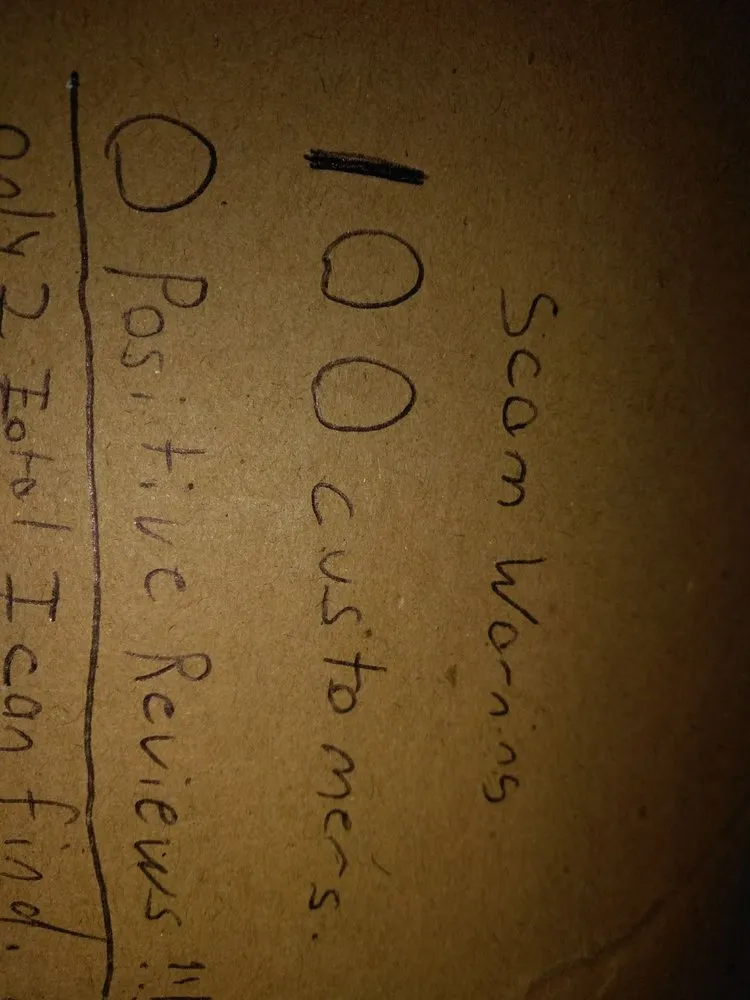 Scam Warning
100 customers.
0 Positive Reviews!!!
only 2 Total I can find.